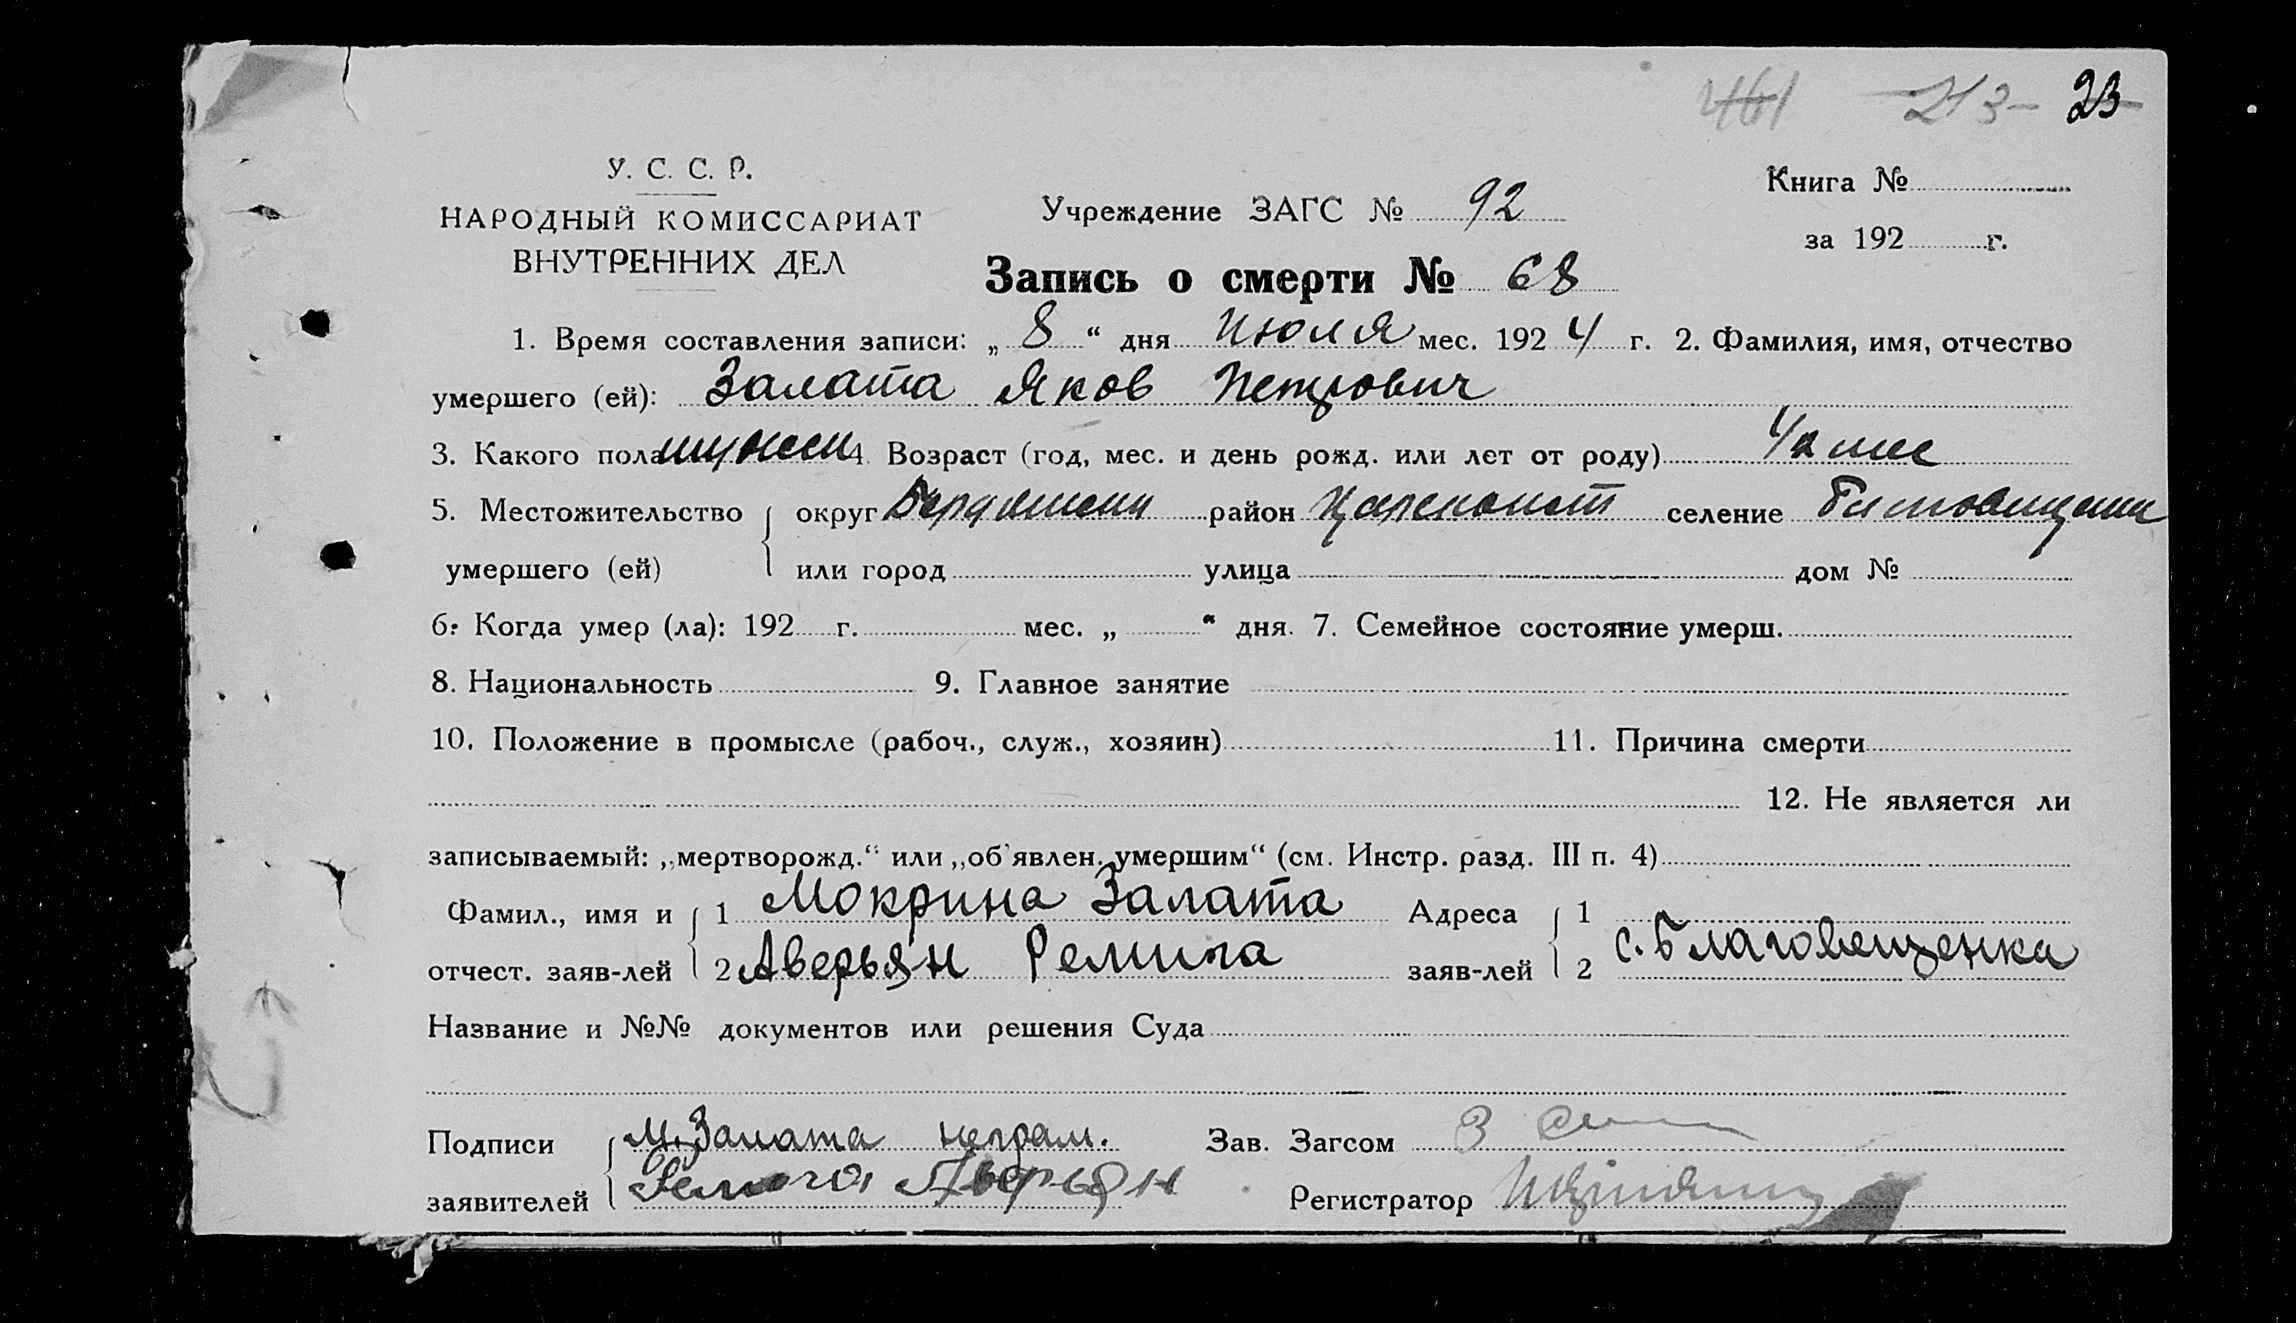 461 213 23
У. С. С. Р.
НАРОДНЫЙ КОМИССАРИАТ
ВНУТРЕННИХ ДЕЛ
Учреждение ЗАГС № 92
Книга №
за 192 г.
Запись о смерти № 68
1. Время составления записи: „ 8 “ дня Июля мес. 1924 г. 2. Фамилия, имя, отчество
умершего (ей): Залата Яков Петрович
3. Какого пола 4. Возраст (год, мес. и день рожд. или лет от роду) 1/2 мес
5. Местожительство округ район селение
умершего (ей) или город улица дом №
6. Когда умер (ла): 192 г. мес. „ “ дня. 7. Семейное состояние умерш.
8. Национальность 9. Главное занятие
10. Положение в промысле (рабоч., служ., хозяин) 11. Причина смерти
12. Не является ли
записываемый: „мертворожд.“ или „об'явлен. умершим“ (см. Инстр. разд. III п. 4)
Фамил., имя и 1 Мокрина Залата Адреса 1
отчест. заяв-лей 2 Аверьян заяв-лей 2 с. Благовещенка
Название и №№ документов или решения Суда
Подписи М. Залата неграм. Зав. Загсом
заявителей Аверьян Регистратор